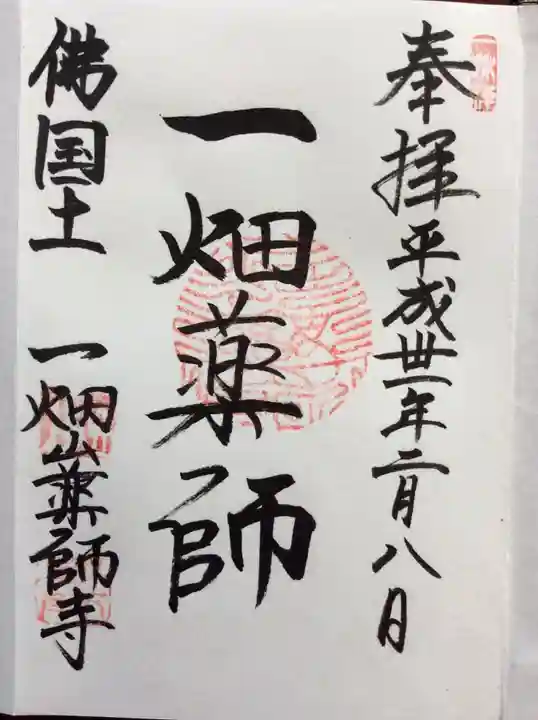 奉拝 平成卅一年二月八日
一畑薬師
佛国土 一畑山薬師寺